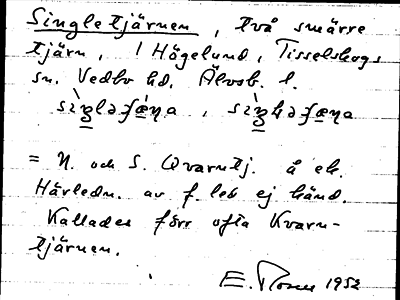 Singletjärnen, två smärre
tjärn, i Högelund, Tisselskogs
sn. Vedbo hd. Älvsb. l.
= N. och S. Qvarntj. å ek.
Härledn. av f. led ej känd.
Kallades förr ofta Kvarn-
tjärnen.
E. 1952